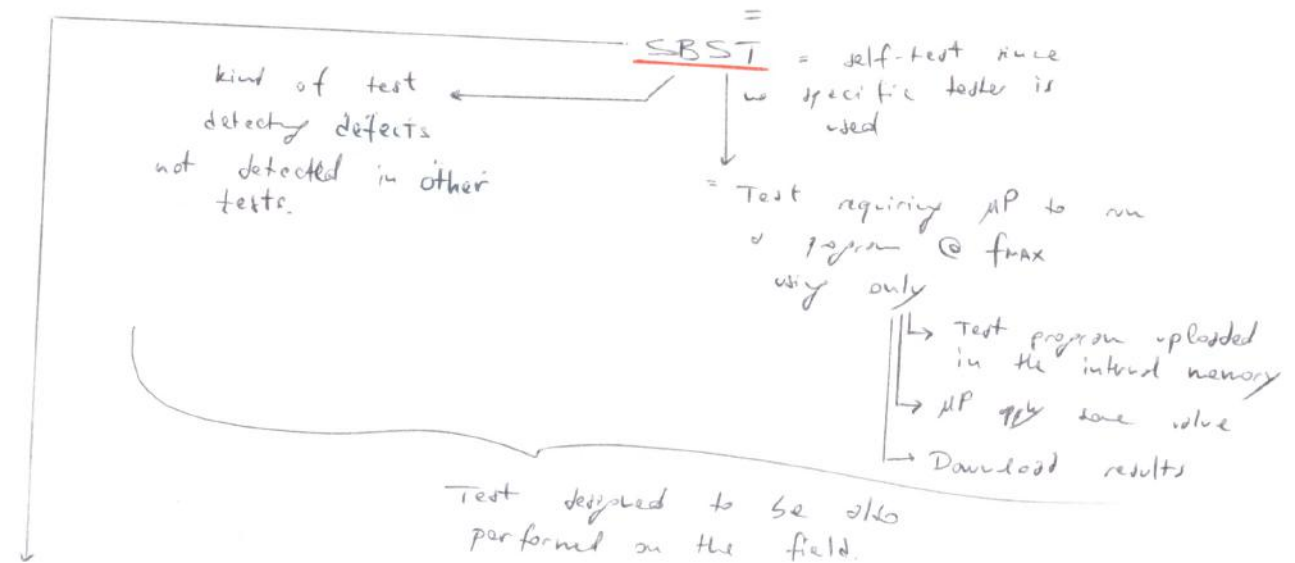 =
SBST = self-test since
no specific tester is
used
kind of test
detecting defects
not detected in other
tests.
= Test requiring μP to run
a program @ fMAX
using only
↳ Test program uploaded
in the internal memory
↳ μP apply some value
→ Download results
Test designed to be also
performed on the field.